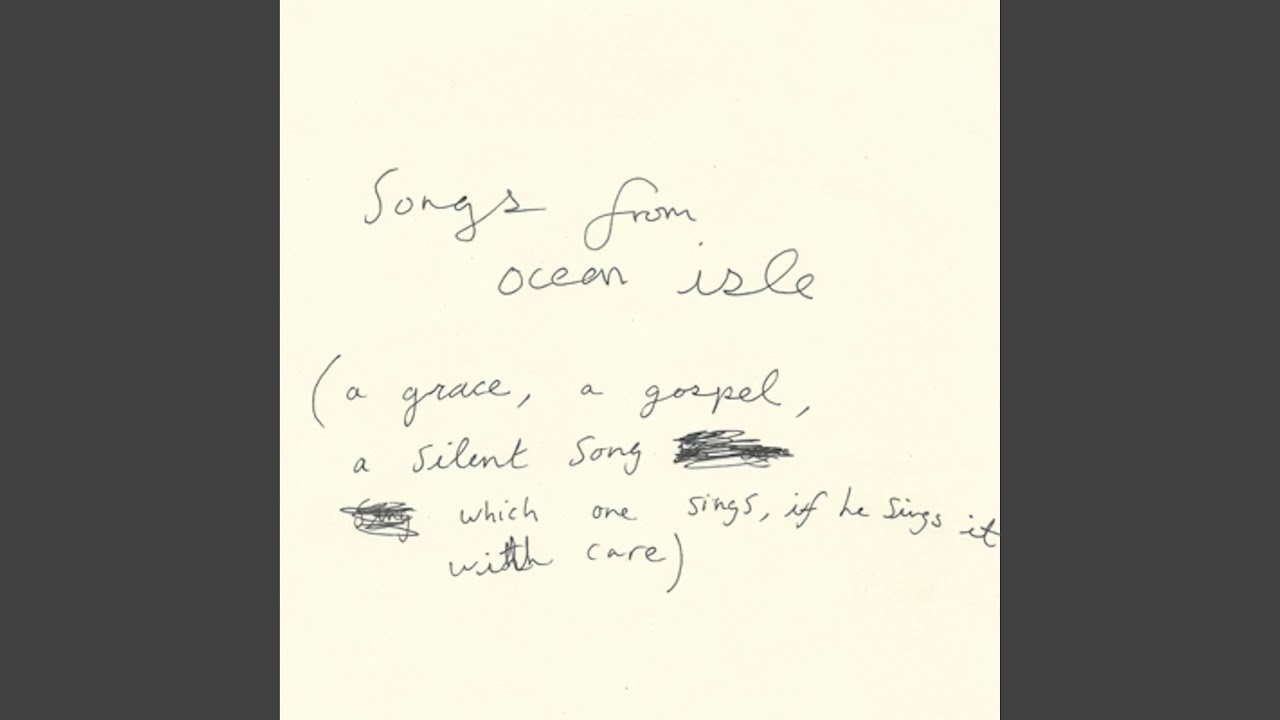 Songs from
ocean isle
(a grace, a gospel,
a silent song
which one sings, if he sings it
with care)